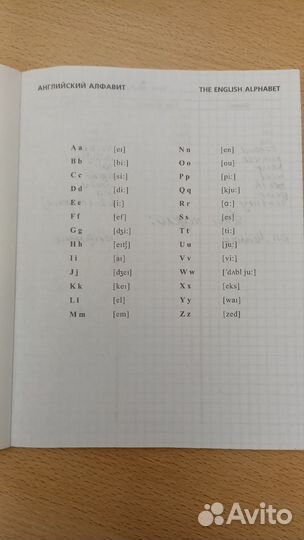 АНГЛИЙСКИЙ АЛФАВИТ THE ENGLISH ALPHABET
A a [eɪ] N n [en]
B b [bi:] O o [ou]
C c [si:] P p [pi:]
D d [di:] Q q [kju:]
E e [i:] R r [ɑ:]
F f [ef] S s [es]
G g [dʒi:] T t [ti:]
H h [eɪtʃ] U u [ju:]
I i [aɪ] V v [vi:]
J j [dʒeɪ] W w ['dʌbl ju:]
K k [keɪ] X x [eks]
L l [el] Y y [waɪ]
M m [em] Z z [zed]
Avito